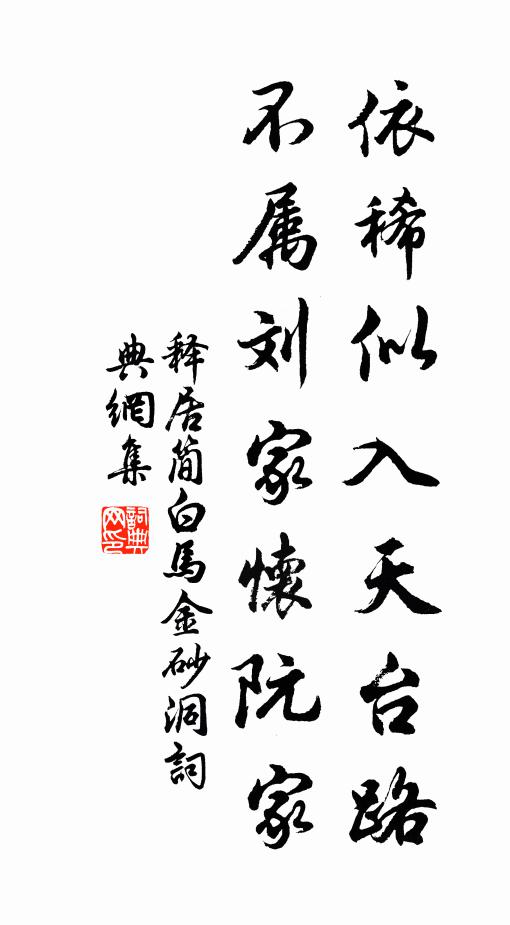 依稀似入天台路
不属刘家懷阮家
释居简白馬金砂洞詞
典網集
詞典网印